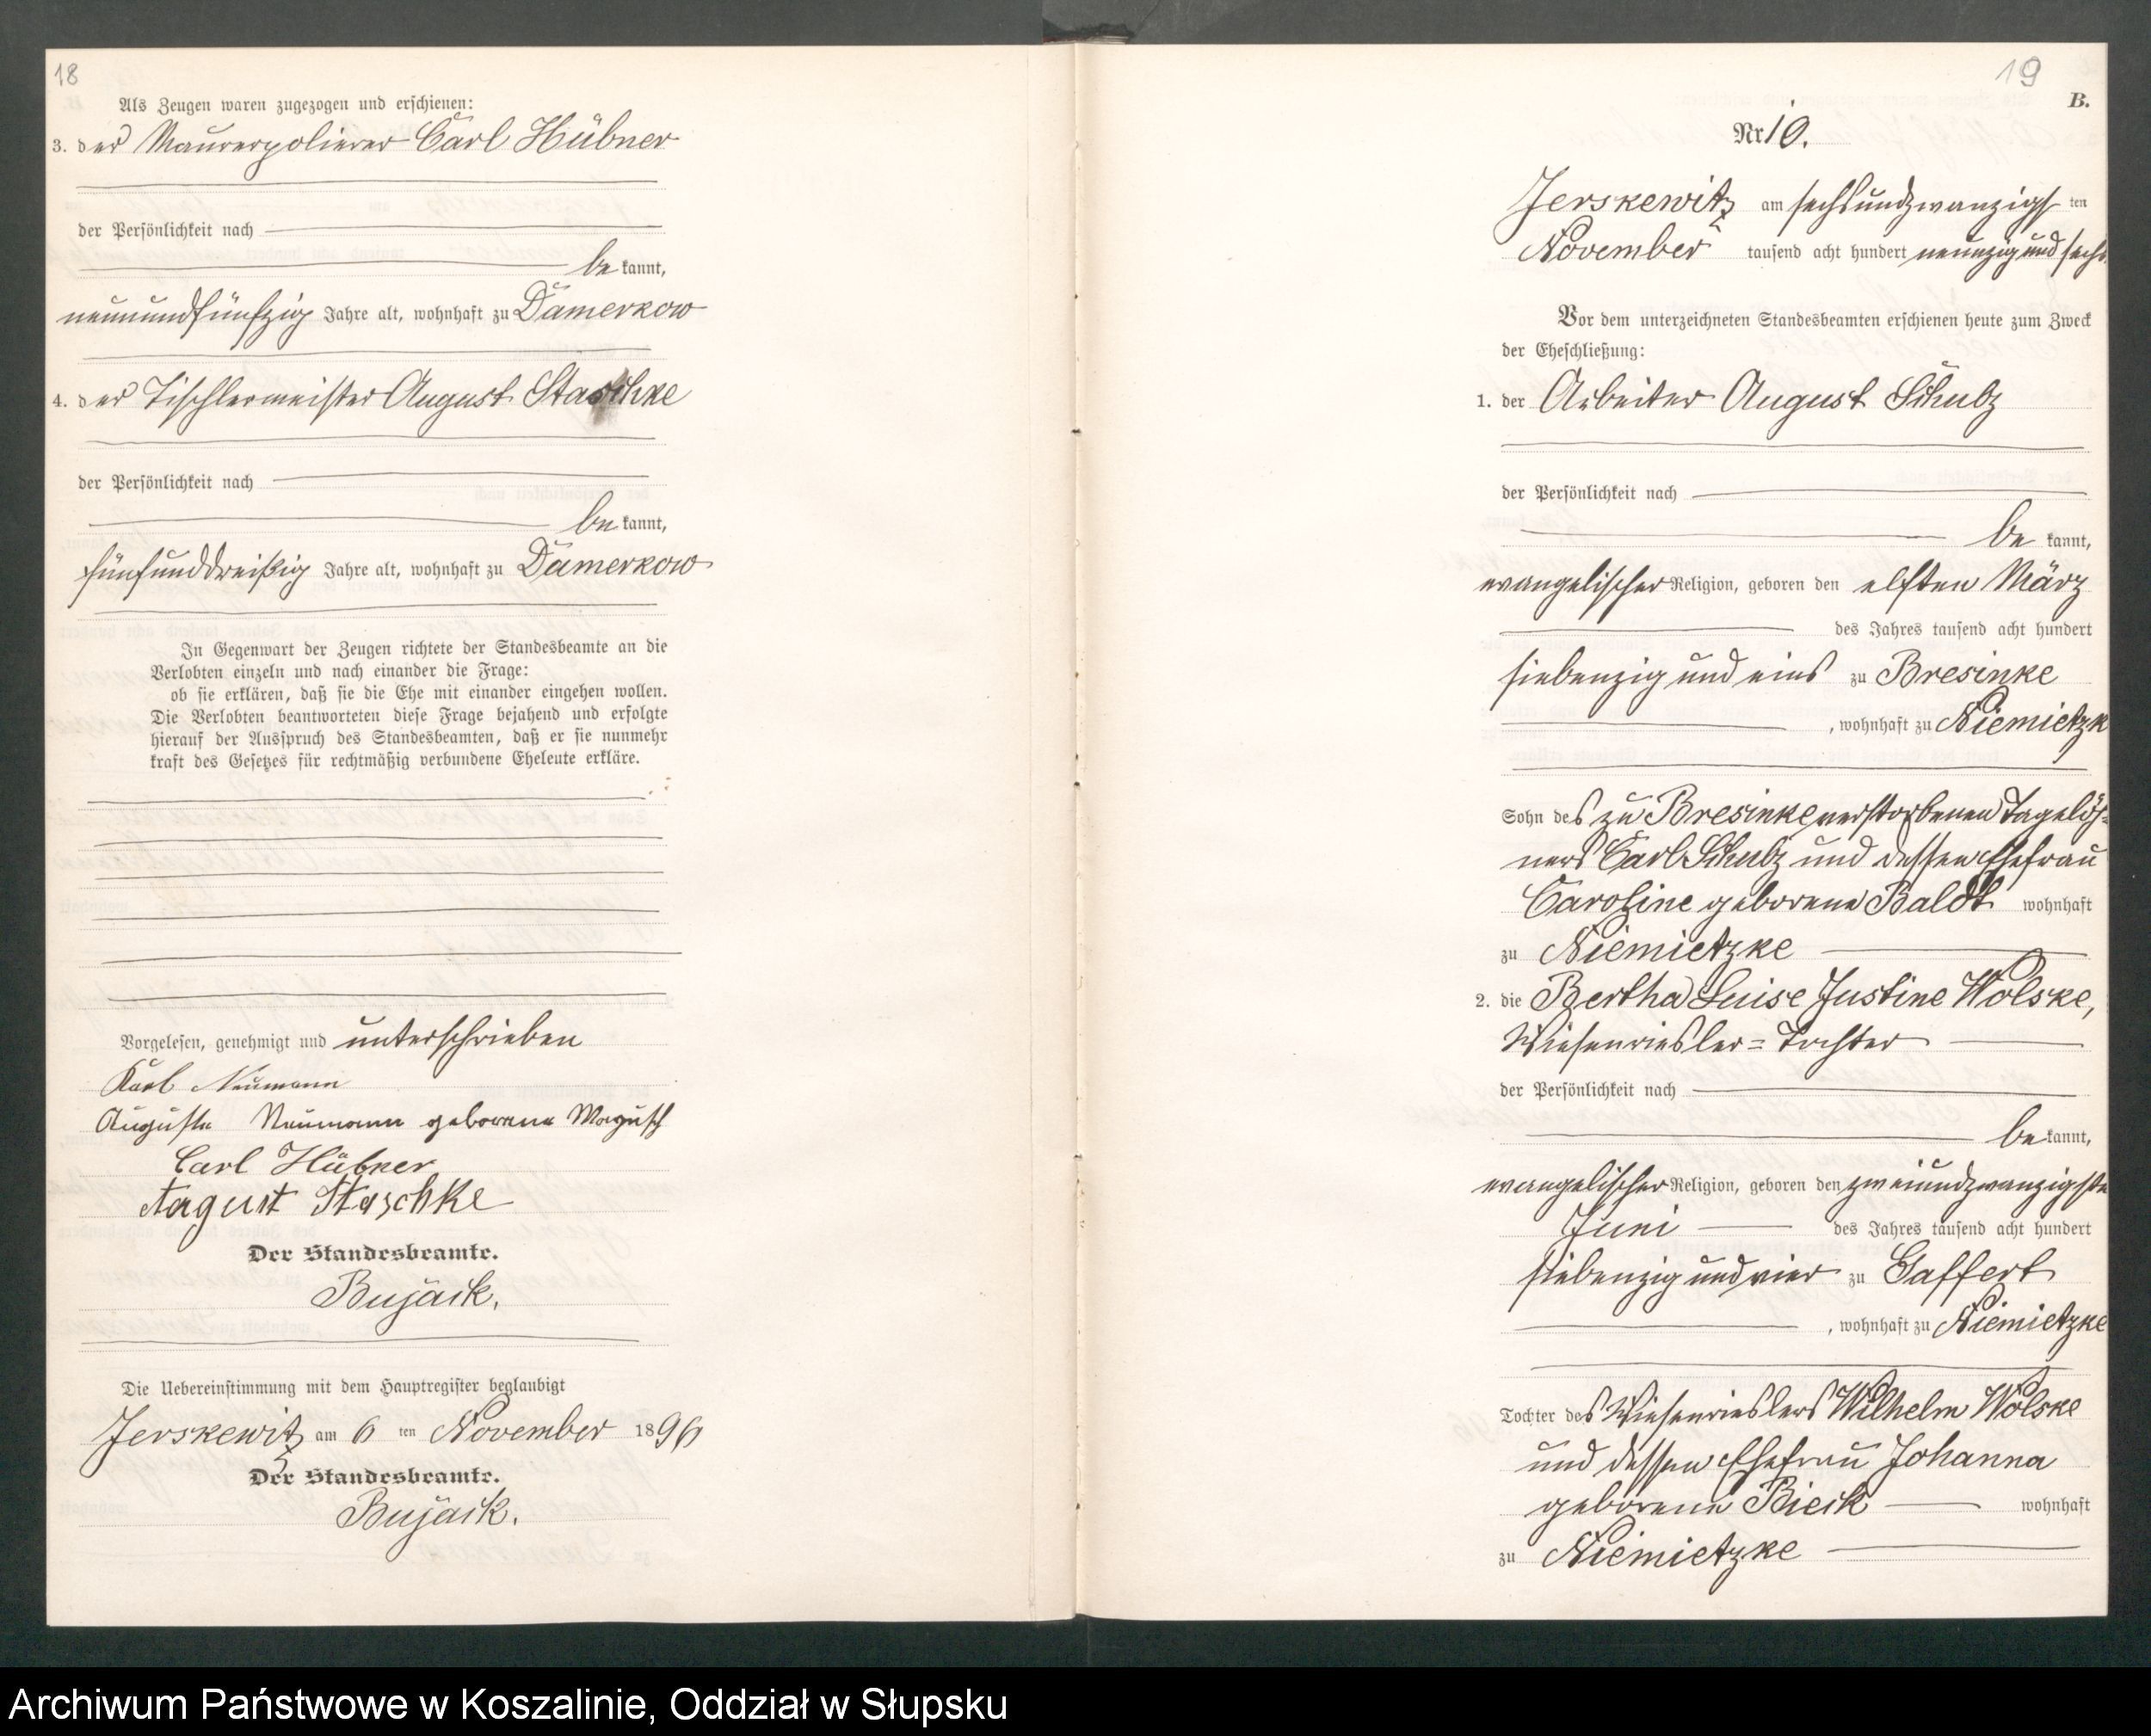 18
Als Zeugen waren zugezogen und erschienen:
3. der Maurerpolierer Carl Hübner
der Persönlichkeit nach
bekannt,
neunundfünfzig Jahre alt, wohnhaft zu Damerkow
4. der Tischlermeister August Staschke
der Persönlichkeit nach
bekannt,
fünfunddreißig Jahre alt, wohnhaft zu Damerkow
In Gegenwart der Zeugen richtete der Standesbeamte an die
Verlobten einzeln und nach einander die Frage:
ob sie erklären, daß sie die Ehe mit einander eingehen wollen.
Die Verlobten beantworteten diese Frage bejahend und erfolgte
hierauf der Ausspruch des Standesbeamten, daß er sie nunmehr
kraft des Gesetzes für rechtmäßig verbundene Eheleute erkläre.
Vorgelesen, genehmigt und unterschrieben
Karl Neumann
Auguste Neumann geborene Magusch
Carl Hübner
August Staschke
Der Standesbeamte.
Bujack.
Die Uebereinstimmung mit dem Hauptregister beglaubigt
Jerskewitz am 6 ten November 1896
Der Standesbeamte.
Bujack.
19
B.
Nr 10.
Jerskewitz am sechsundzwanzigsten
November tausend acht hundert neunzig und sechs
Vor dem unterzeichneten Standesbeamten erschienen heute zum Zweck
der Eheschließung:
1. der Arbeiter August Schulz
der Persönlichkeit nach
bekannt,
evangelischer Religion, geboren den elften März
des Jahres tausend acht hundert
siebenzig und eins zu Bresinke
, wohnhaft zu Niemietzk
Sohn des zu Bresinke verstorbenen Tagelöh-
ners Carl Schulz und dessen Ehefrau
Caroline geborene Baldt wohnhaft
zu Niemietzke
2. die Bertha Luise Justine Wolske,
Wiesenriesler-Tochter
der Persönlichkeit nach
bekannt,
evangelischer Religion, geboren den zweiundzwanzigsten
Juni des Jahres tausend acht hundert
siebenzig und vier zu Gaffert
, wohnhaft zu Niemietzke
Tochter des Wiesenrieslers Wilhelm Wolske
und dessen Ehefrau Johanna
geborene Bieck wohnhaft
zu Niemietzke
Archiwum Państwowe w Koszalinie, Oddział w Słupsku